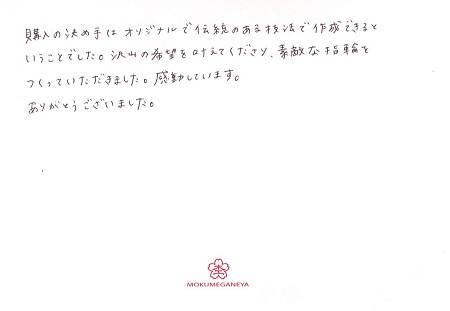 購入の決め手はオリジナルで伝統のある技法で作成できると
いうことでした。沢山の希望を叶えてくださり、素敵な指輪を
つくっていただきました。感動しています。
ありがとうございました。
MOKUMEGANEYA